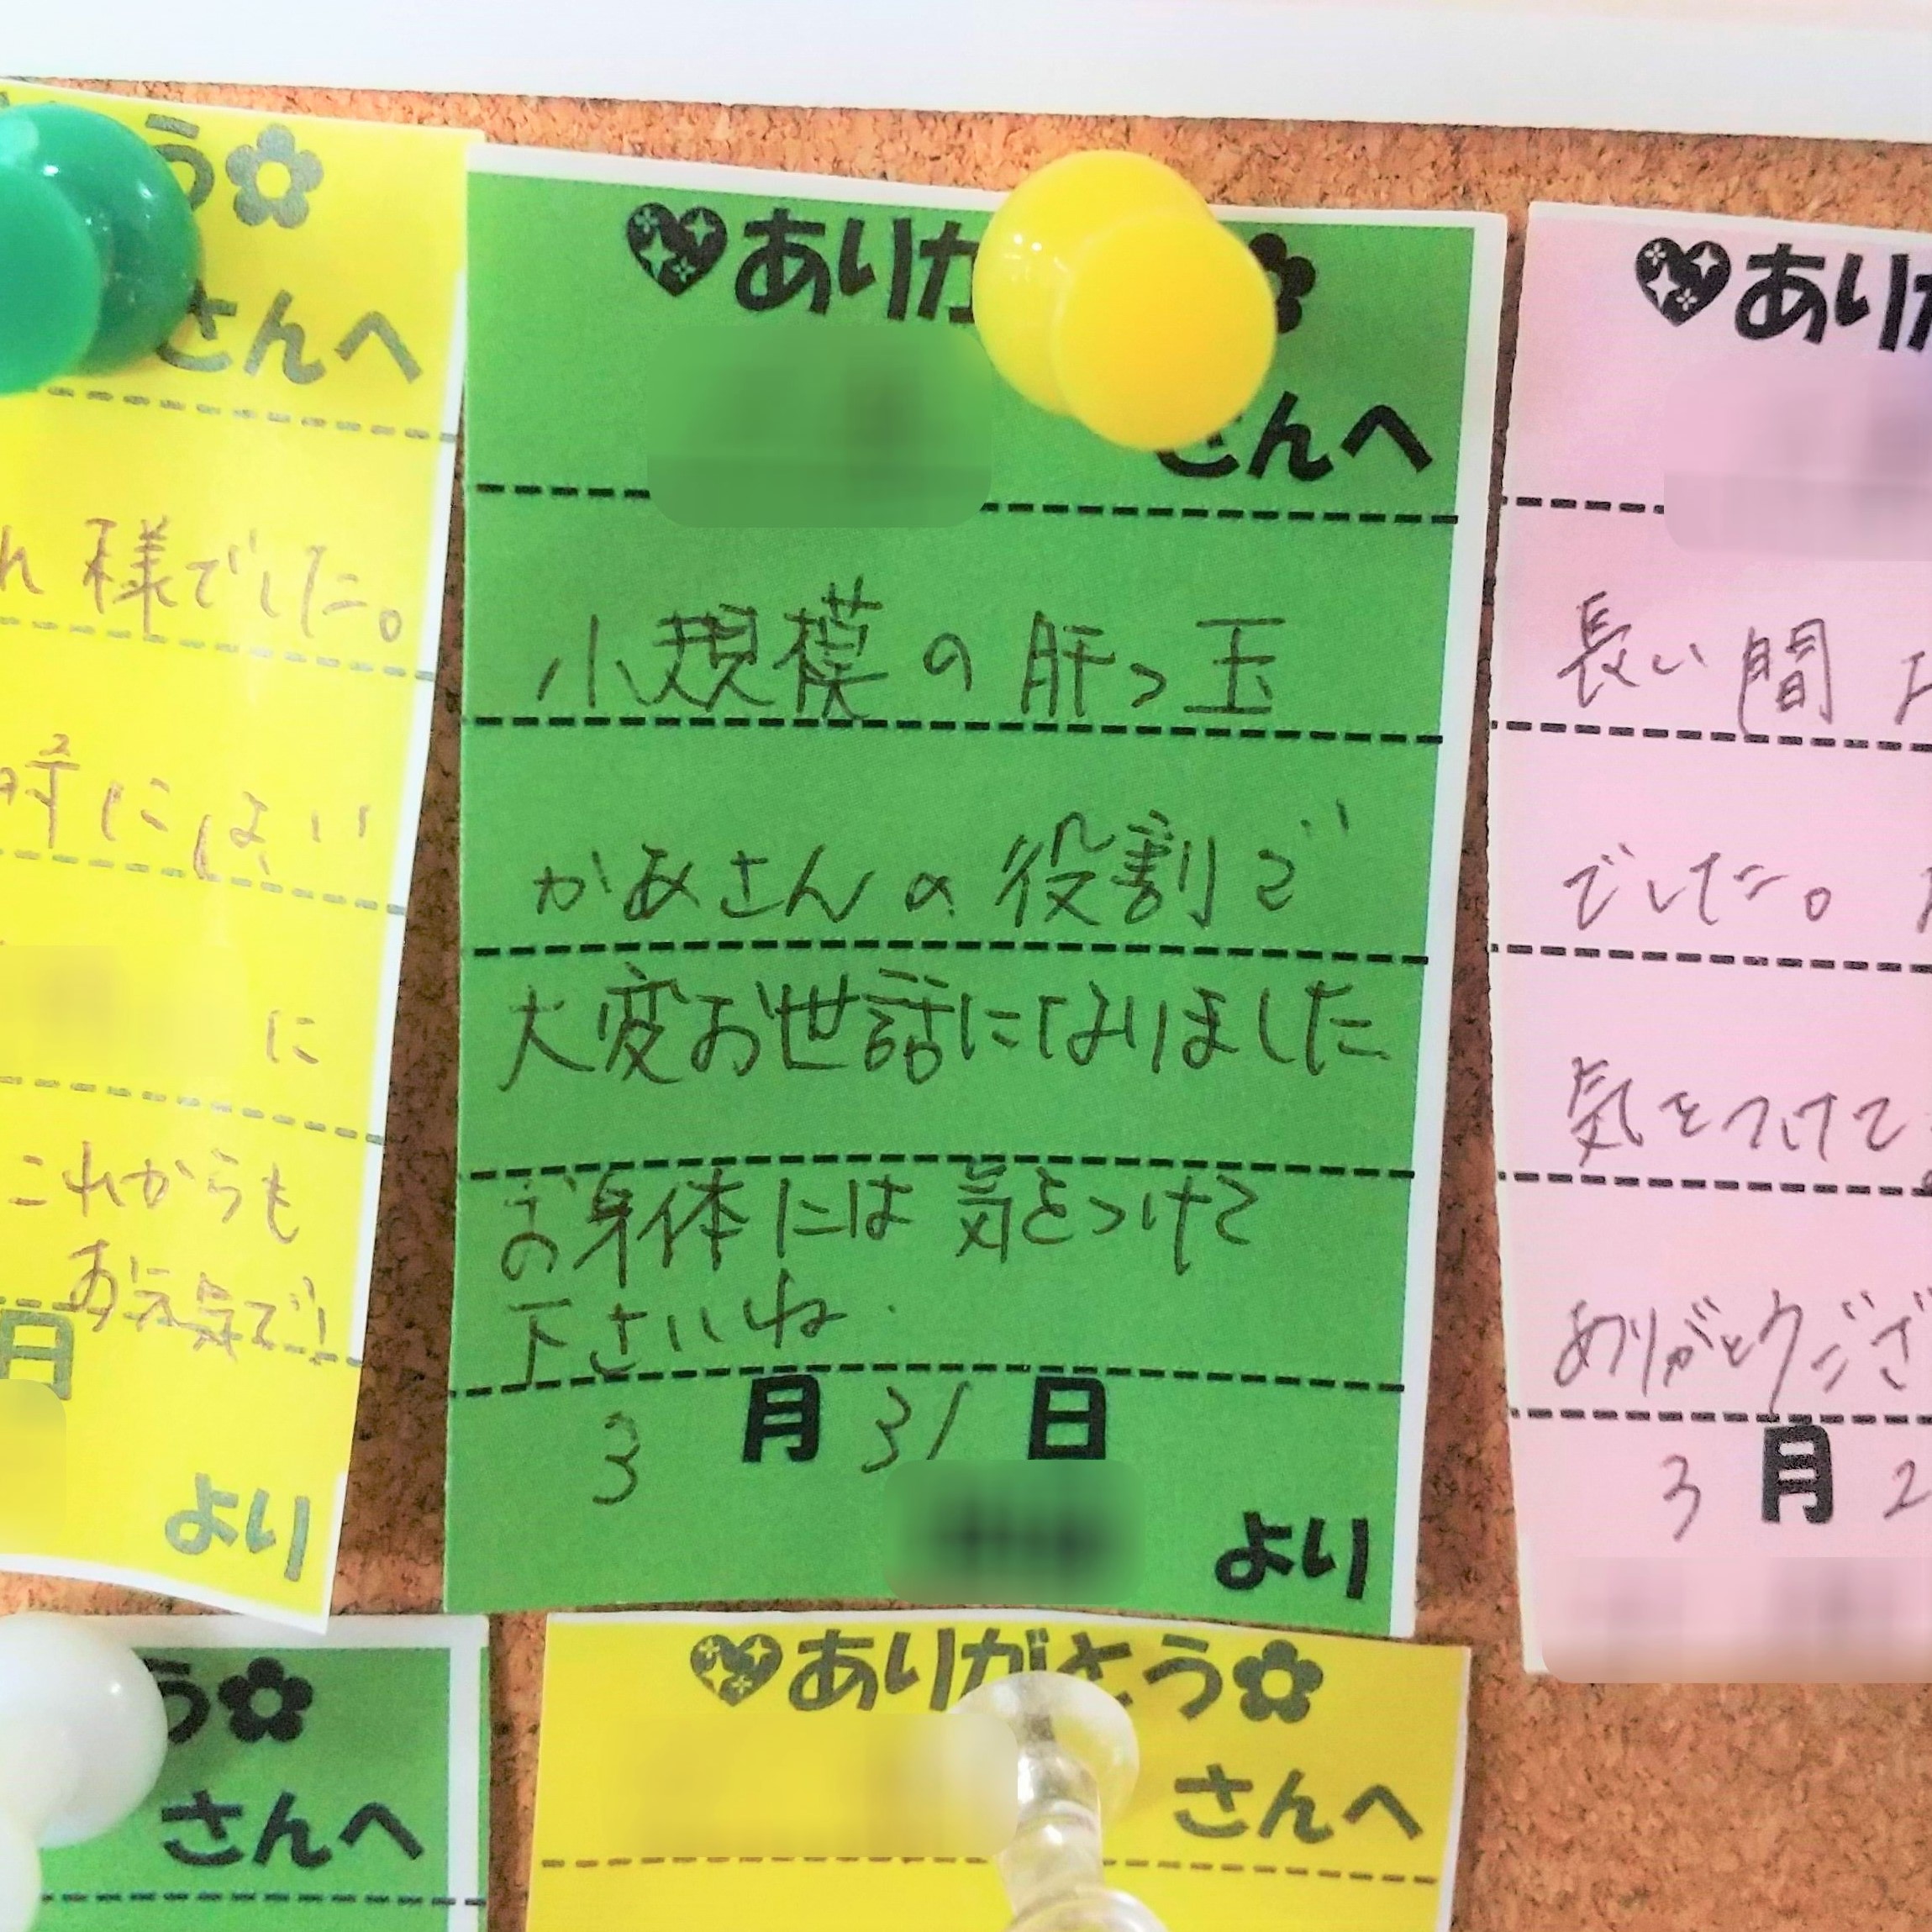 う✿
さんへ
れ様でした。
時にはい
に
これからも
お元気で!
月
より
♥ありが✿
さんへ
小規模の肝っ玉
かあさんの役割で
大変お世話になりました
お身体には気をつけて
下さいね.
3月31日
より
♥ありが
長い間
でした。
気をつけて
ありがとうござ
3月2
う✿
さんへ
♥ありがとう✿
さんへ